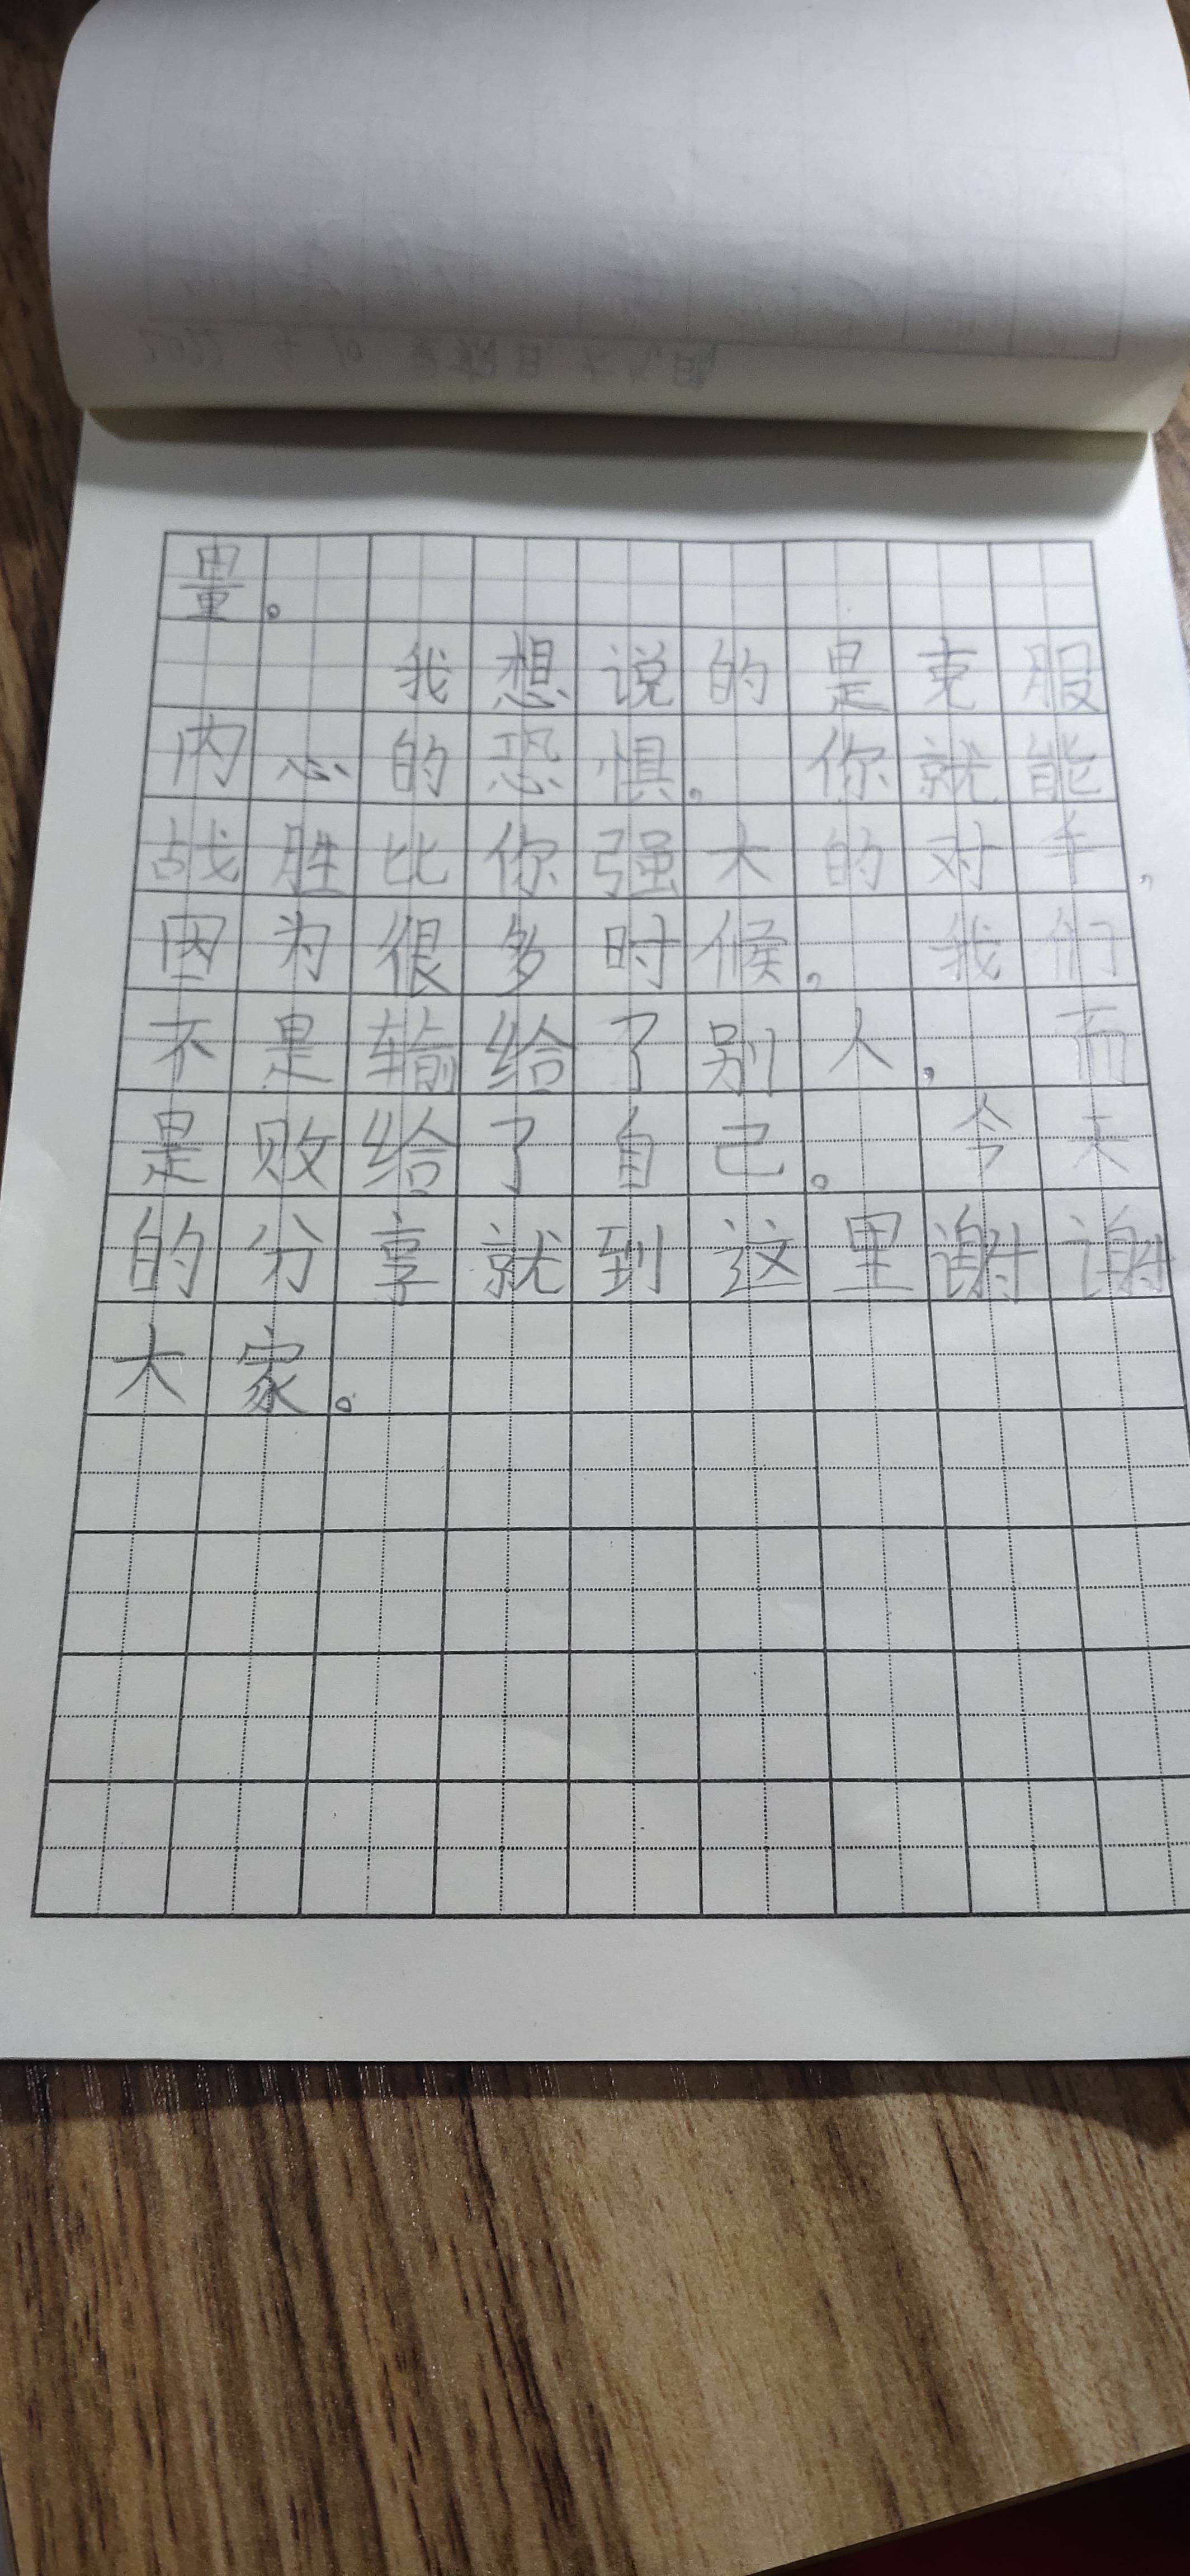 量。
我想说的是克服
内心的恐惧，你就能
战胜比你强大的对手，
因为很多时候，我们
不是输给了别人，而
是败给了自己。今天
的分享就到这里谢谢
大家。